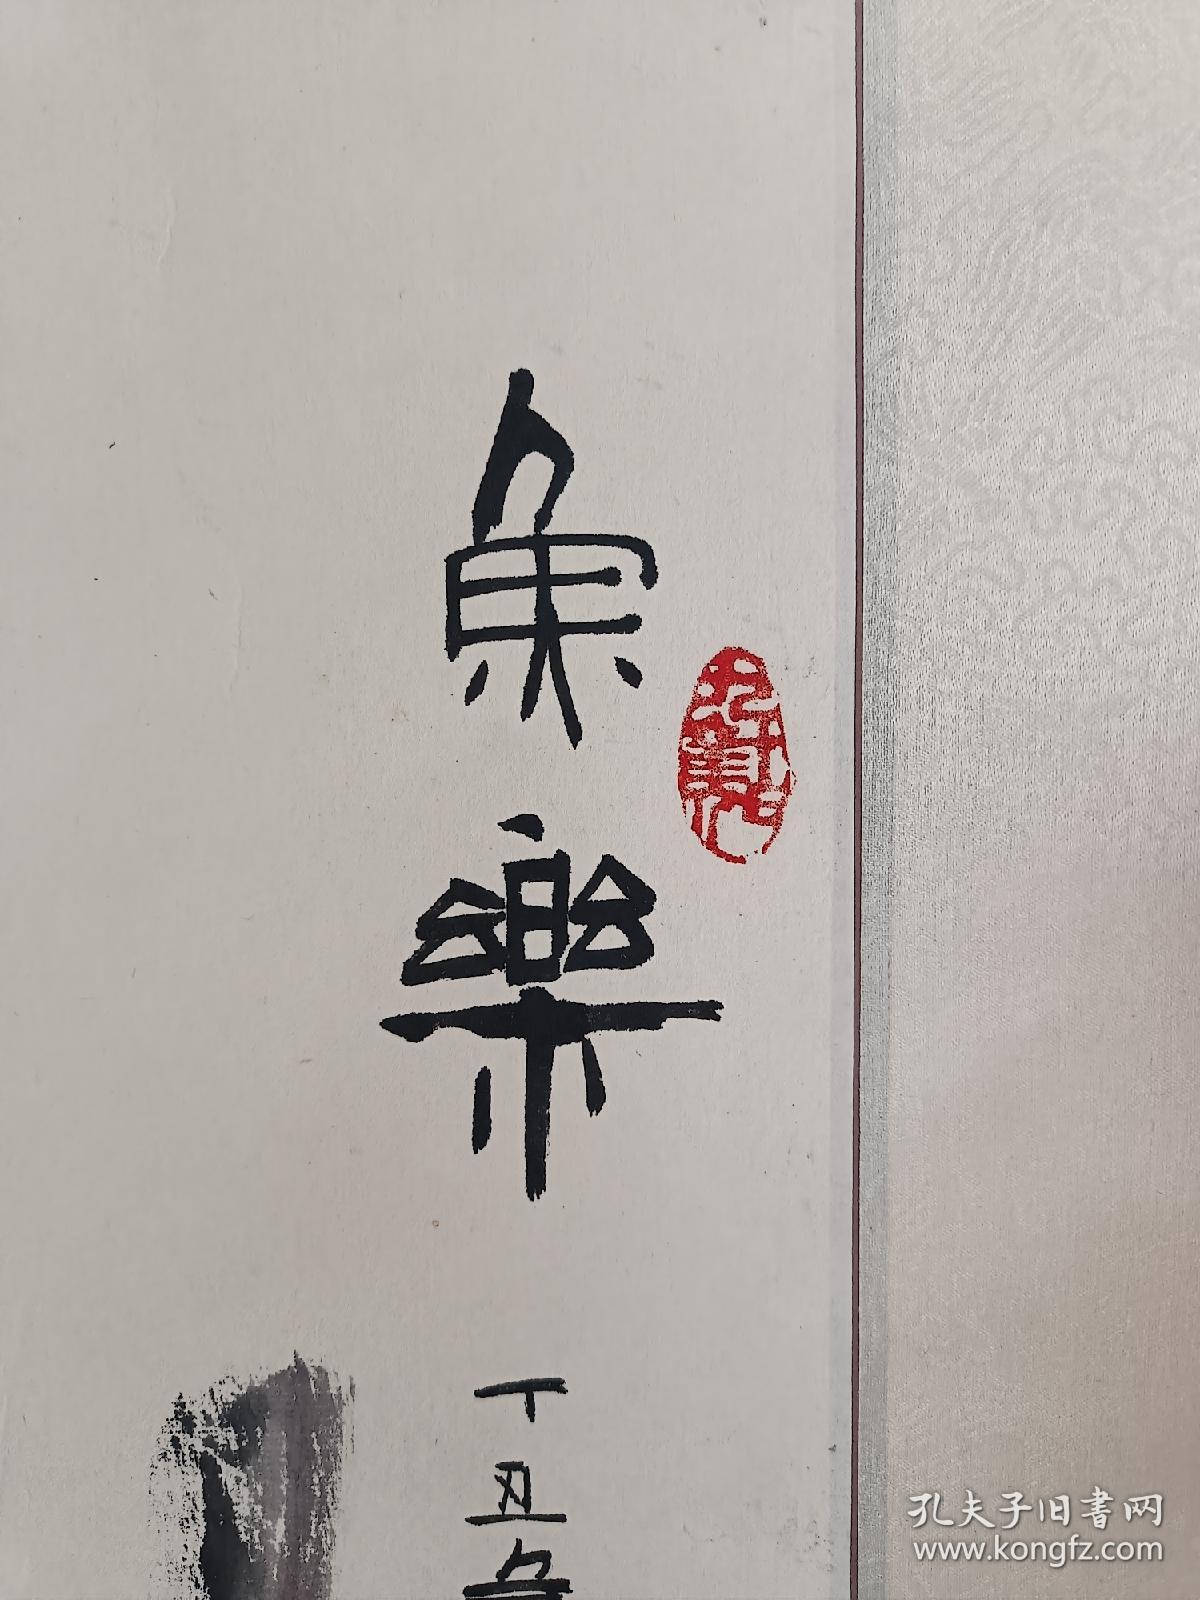 魚樂
丁丑
孔夫子旧书网
www.kongfz.com